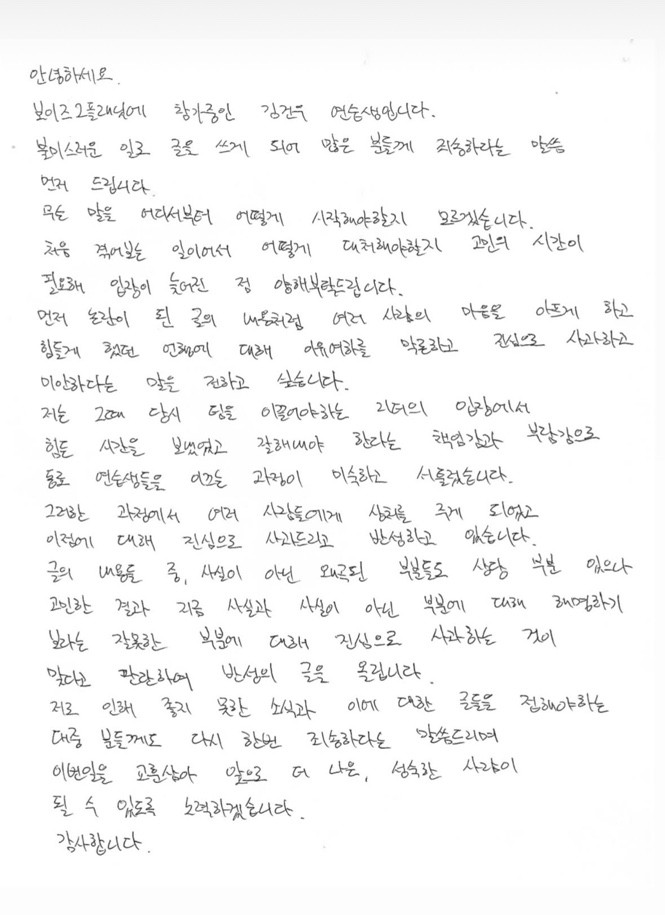 안녕하세요.
보이즈2플래닛에 참가중인 김건우 연습생입니다.
불미스러운 일로 글을 쓰게 되어 많은 분들께 죄송하라는 말씀
먼저 드립니다.
무슨 말을 어디서부터 어떻게 시작해야할지 모르겠습니다.
처음 겪어보는 일이어서 어떻게 대처해야할지 고민의 시간이
필요해 입장이 늦어진 점 양해부탁드립니다.
먼저 논란이 된 글의 내용처럼 여러 사람의 마음을 아프게 하고
힘들게 했던 언행에 대해 이유여하를 막론하고 진심으로 사과하고
미안하다는 말을 전하고 싶습니다.
저는 그때 당시 팀을 이끌어야하는 리더의 입장에서
힘든 시간을 보냈었고 잘해내야 한다는 책임감과 부담감으로
동료 연습생들을 이끄는 과정이 미숙하고 서툴렀습니다.
그러한 과정에서 여러 사람들에게 상처를 주게 되었고
이점에 대해 진심으로 사과드리고 반성하고 있습니다.
글의 내용들 중, 사실이 아닌 왜곡된 부분들도 상당 부분 있으나
고민한 결과 지금 사실과 사실이 아닌 부분에 대해 해명하기
보다는 잘못한 부분에 대해 진심으로 사과하는 것이
맞다고 판단하여 반성의 글을 올립니다.
저로 인해 좋지 못한 소식과 이에 대한 글들을 접해야하는
대중 분들께도 다시 한번 죄송하다는 말씀드리며
이번일을 교훈삼아 앞으로 더 나은, 성숙한 사람이
될 수 있도록 노력하겠습니다.
감사합니다.